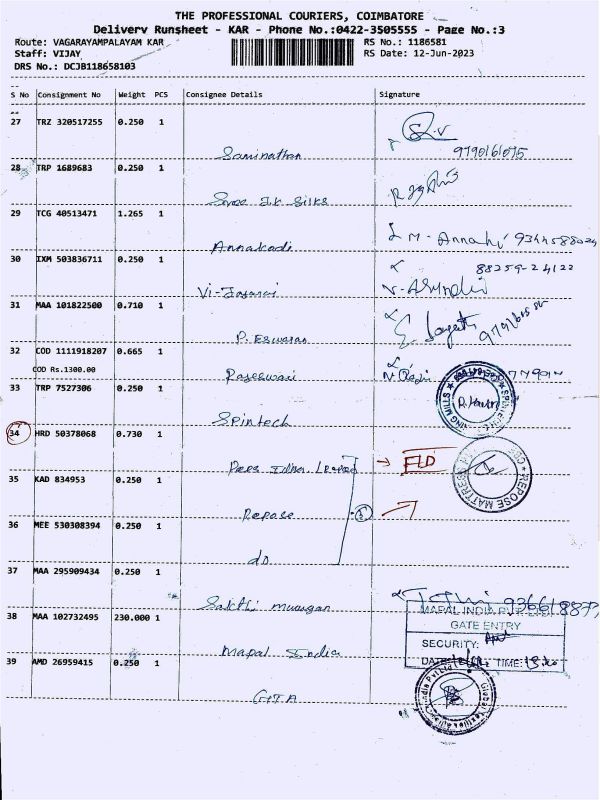 THE PROFESSIONAL COURIERS, COIMBATORE
Delivery Runsheet - KAR - Phone No.:0422-3505555 - Page No.:3
Route: VAGARAYAMPALAYAM KAR
RS No.: 1186581
Staff: VIJAY
RS Date: 12-Jun-2023
DRS No.: DCJB118658103
S No Consignment No Weight PCS Consignee Details Signature
27 TRZ 320517255 0.250 1
Saminathan 9790161075
28 TRP 1689683 0.250 1
Sree Silks
29 TCG 40513471 1.265 1
Annakodi M- Annaki
30 IXM 503836711 0.250 1
88259-24122
31 MAA 101822500 0.710 1
P. Eswaran
32 COD 1111918207 0.665 1
COD Rs.1300.00
Rajeswari
33 TRP 7527306 0.250 1
Spintech
34 HRD 50378068 0.730 1
FLD
35 KAD 834953 0.250 1
Repose
REPOSE MATTRESS
36 MEE 530308394 0.250 1
do
37 MAA 295909434 0.250 1
Sakthi murugan
38 MAA 102732495 230.000 1
Mapal India
MAPAL INDIA
GATE ENTRY
SECURITY:
DATE: TIME:
39 AMD 26959415 0.250 1
GTA